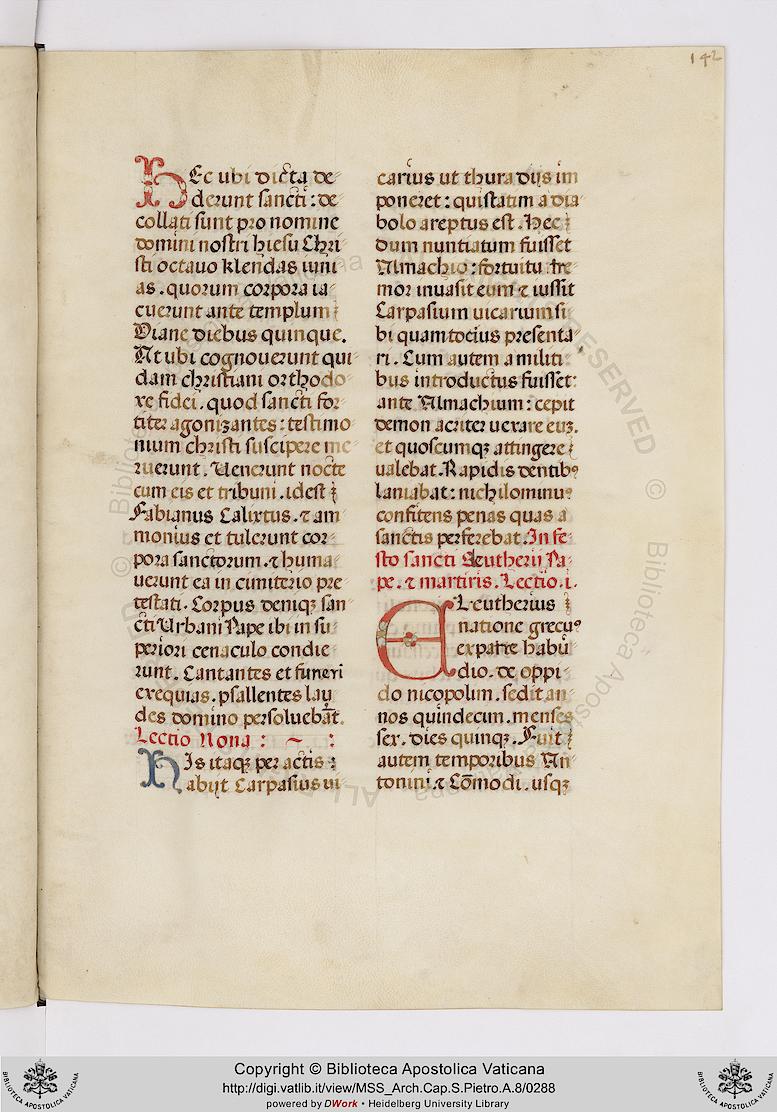 142
Hec ubi dicta de-
derunt sancti: de
collati sunt pro nomine
domini nostri hiesu Chri
sti octauo klendas iuni
as. quorum corpora ia-
cuerunt ante templum
Diane diebus quinque.
At ubi cognouerunt qui-
dam christiani orthodo-
xe fidei. quod sancti for-
titer agonizantes: testimo-
nium christi suscipere me-
ruerunt. Uenerunt nocte
cum eis et tribuni. idest
Fabianus Calixtus. ⁊ am-
monius et tulerunt cor-
pora sanctorum. ⁊ huma-
uerunt ea in cimiterio pre-
testati. Corpus deniqꝫ san-
cti Urbani Pape ibi in su-
periori cenaculo condie-
runt. Cantantes et funeri
exequias. psallentes lau-
des domino persoluebāt.
Lectio Nona: ~ :
His itaqꝫ per actis:
abijt Carpasius ui-
carius ut thura dijs im-
poneret: qui statim a dia-
bolo areptus est. Hec
dum nuntiatum fuisset
Almachio: fortuitu tre-
mor inuasit eum ⁊ iussit
Carpasium uicarium si-
bi quamtocius presenta-
ri. Cum autem a militi-
bus introductus fuisset:
ante Almachium: cepit
demon acriter uexare euꝫ.
et quoscumqꝫ attingere
ualebat. Rapidis dentibꝰ
laniabat: nichilominuꝰ
confitens penas quas a
sanctis perferebat. In fe-
sto sancti Eleutherij Pa-
pe. ⁊ martiris. Lectio .i.
Eleutherius
natione grecuꝰ
ex patre habū-
dio. de oppi-
do nicopolim. sedit an-
nos quindecim. menses
sex. dies quinqꝫ. Fuit
autem temporibus An-
tonini. ⁊ Cōmodi. usqꝫ
Copyright © Biblioteca Apostolica Vaticana
http://digi.vatlib.it/view/MSS_Arch.Cap.S.Pietro.A.8/0288
powered by DWork • Heidelberg University Library
BIBLIOTECA APOSTOLICA VATICANA
BIBLIOTECA APOSTOLICA VATICANA